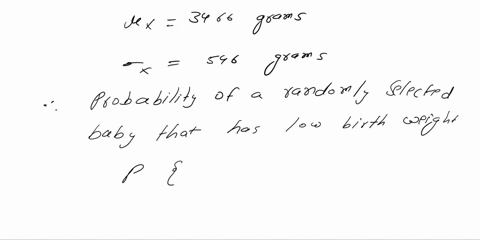 μx = 3466 grams
σx = 546 grams
∴ Probability of a randomly selected
baby that has low birth weight
P {